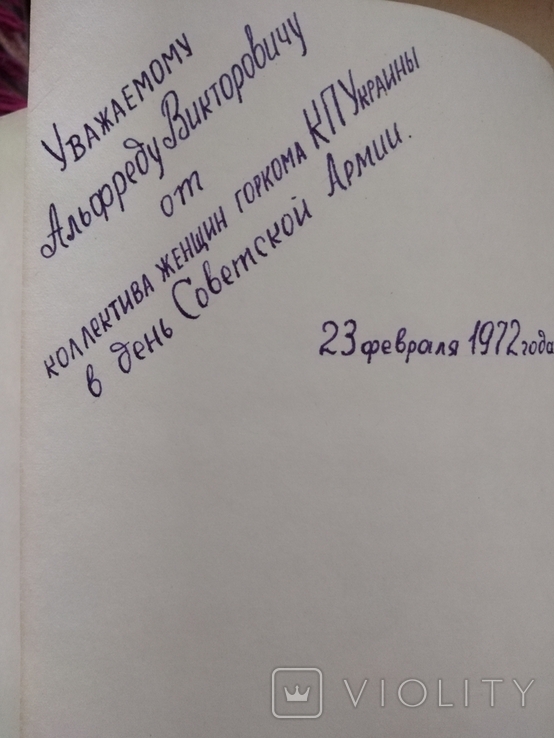 Уважаемому
Альфреду Викторовичу
от
коллектива женщин горкома КПУкраины
в день Советской Армии.
23 февраля 1972 года
VIOLITY